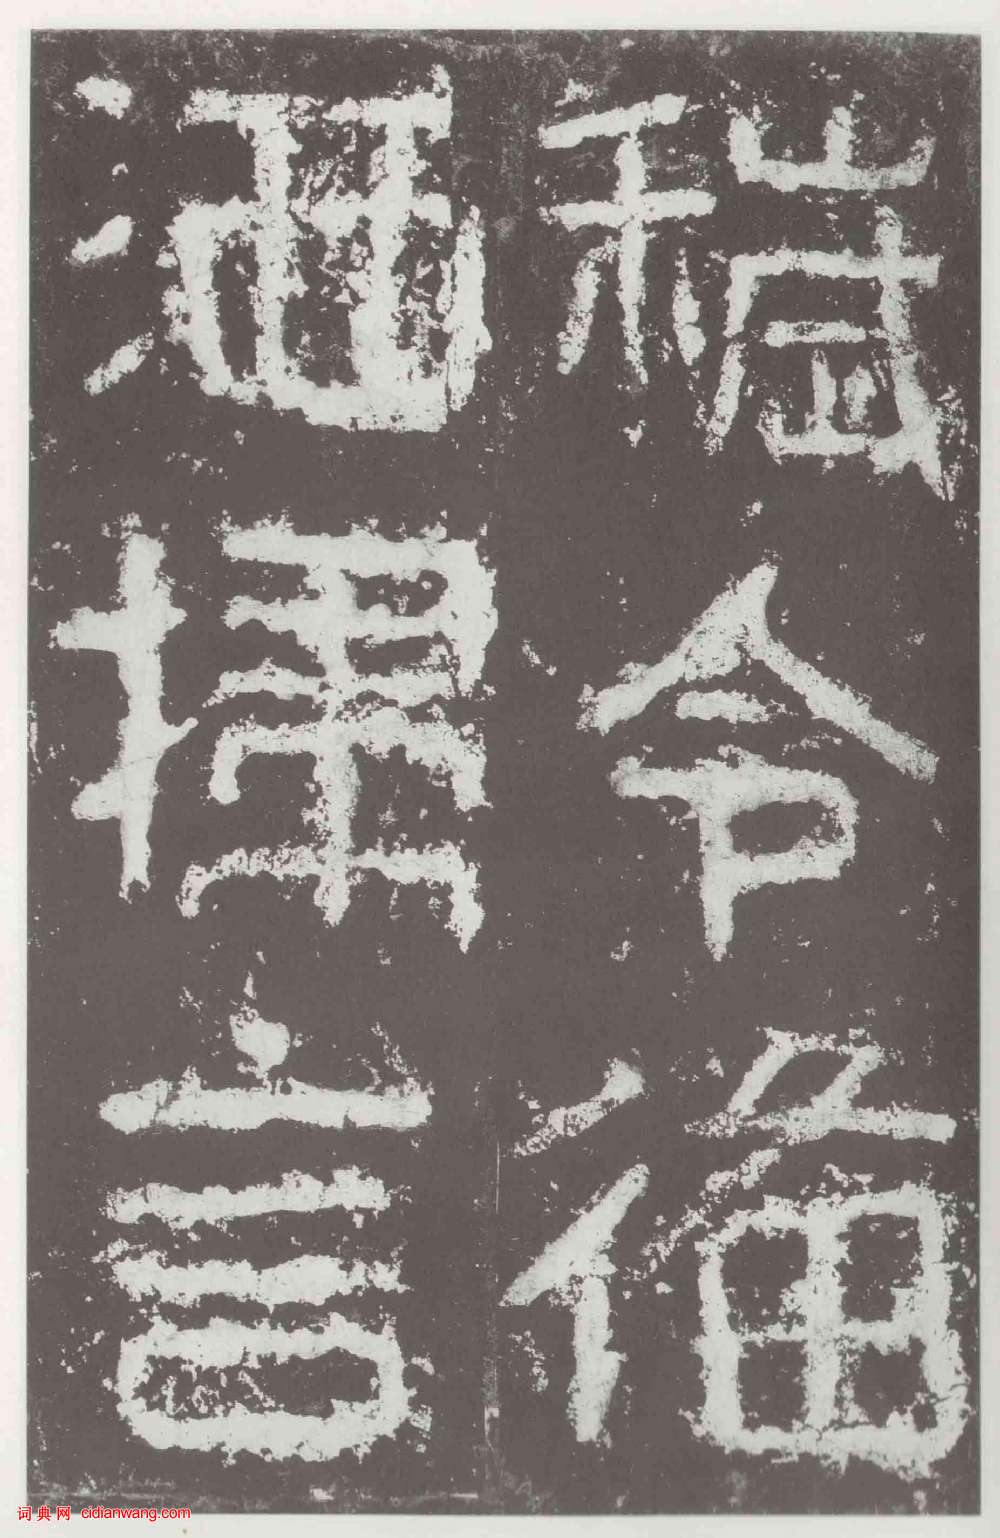 穢令備
洒掃言
词典网 cidianwang.com